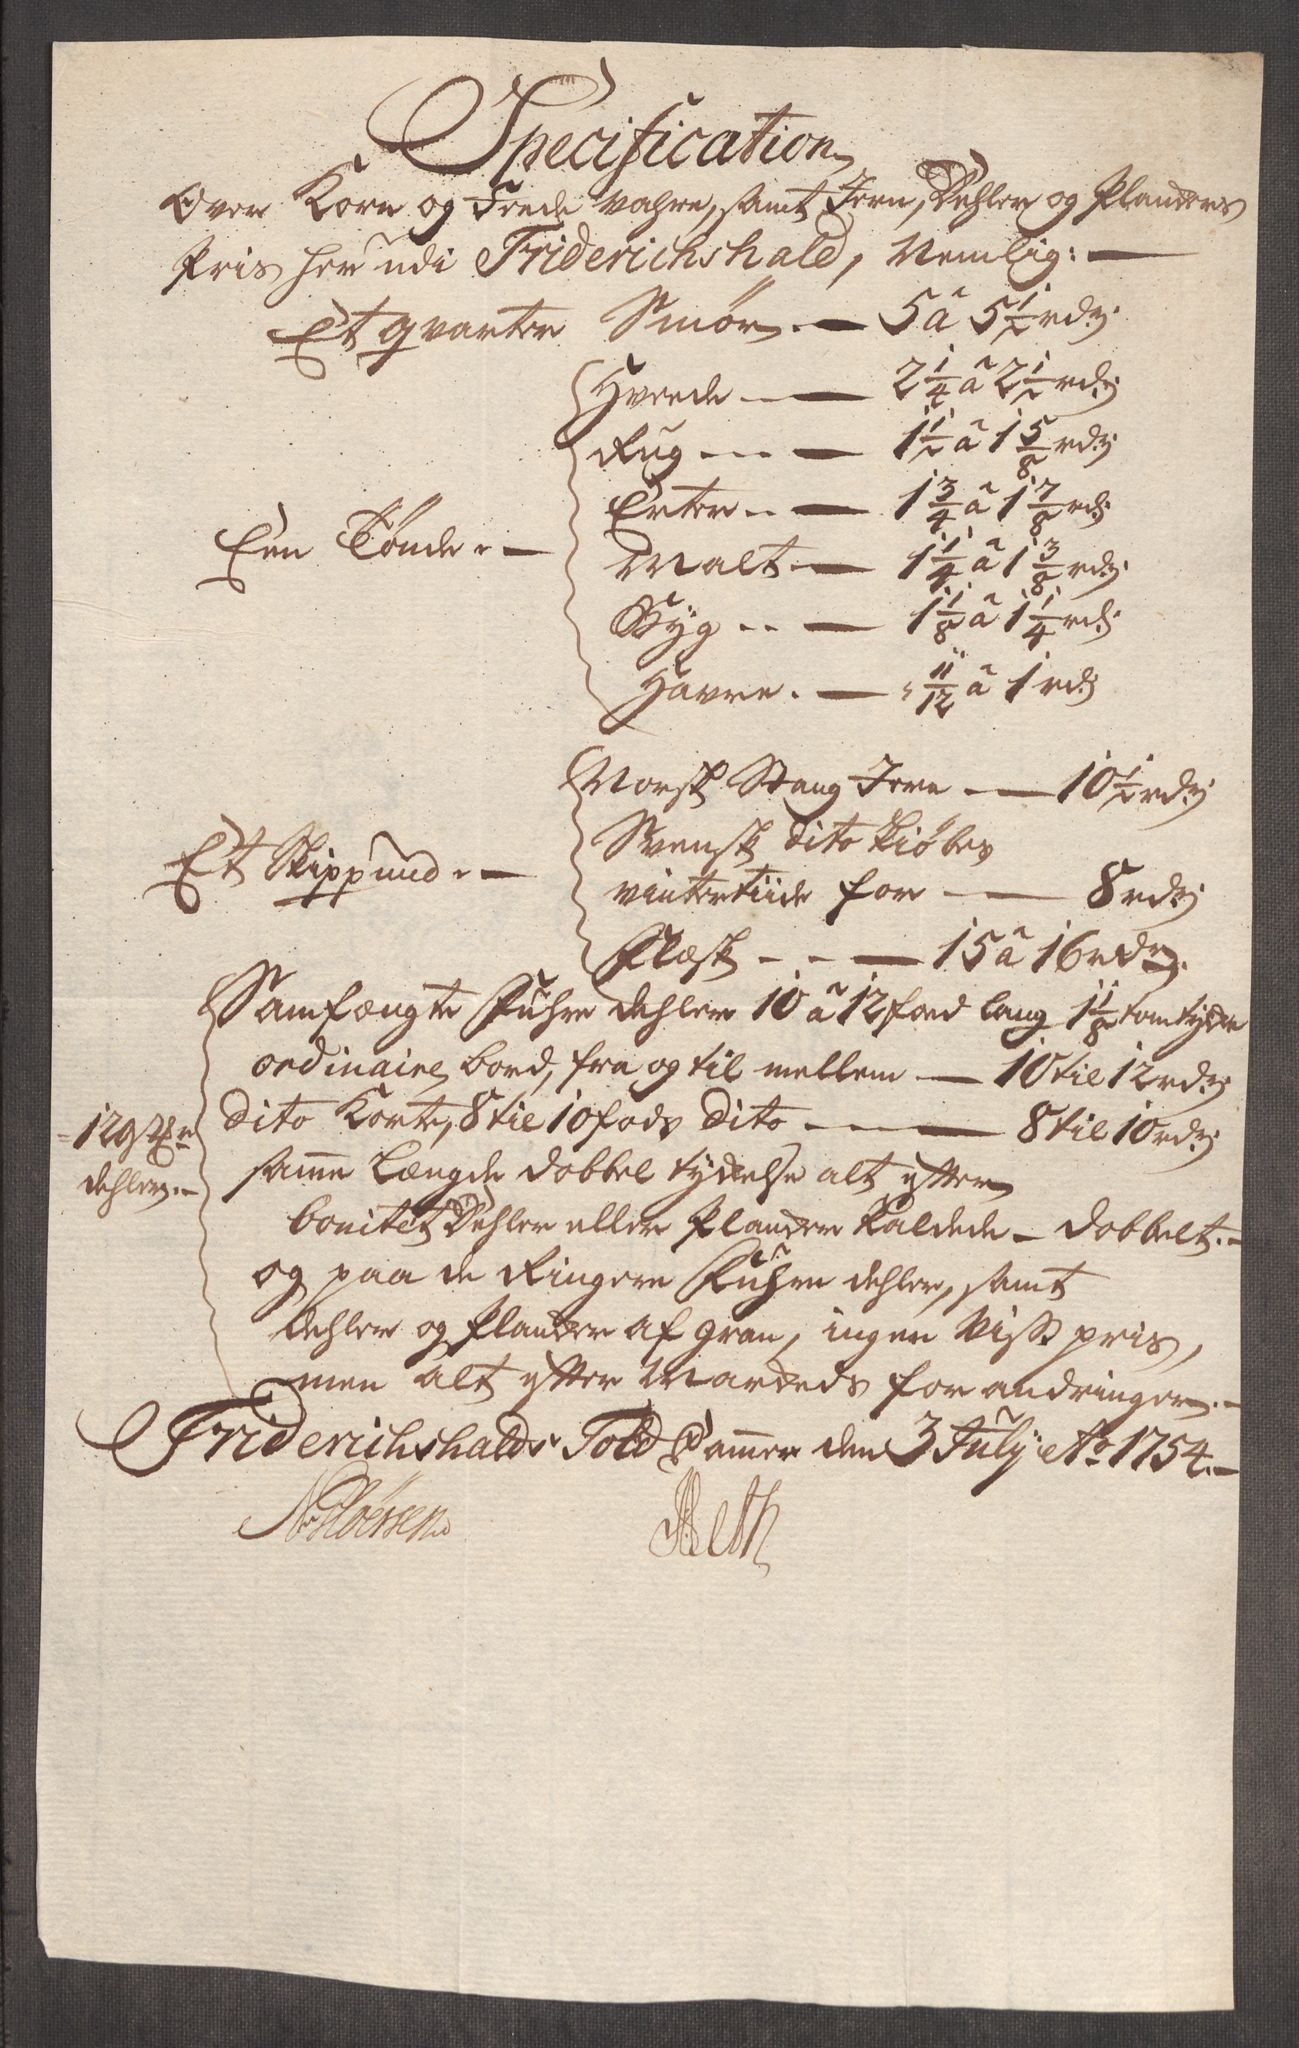 Specification
Over Korn og Feede vahre, samt Jern, Dehler og Planckers
Pris her udi Friderichshald, Nemlig:
Et qvarter Smør. — 5 â 5 1/2 rdr:
Hvede — 2 1/4 â 2 1/2 rdr:
Rug — 1 1/2 â 1 5/8 rdr:
Erter — 1 3/4 â 1 7/8 rdr:
Een Tønde. —
Malt — 1 1/4 â 1 3/8 rdr:
Byg — 1 1/8 â 1 1/4 rdr:
Havre. — 11/12 â 1 rdr:
Norsk Stang Jern — 10 1/2 rdr:
Svensk dito kiøbes
Et Skippund. —
vintertiide for — 8 rdr:
Flæsk — 15 â 16 rdr:
Samfængte Fuhre dehler 10 â 12 fod lang 1 1/8 tom tyke
ordinaire, bord, fra og til mellem — 10 til 12 rdr:
dito Korte, 8 til 10 fods dito — 8 til 10 rdr:
dehler. —
samme Længde dobbel tykelse alt efter
bonitet Dehler eller Plancker kaldede — dobbelt. —
og paa de Ringere Fuhre dehler, samt
dehler og Plancker af gran, ingen Viss pris,
men alt efter Markeds forandringer. —
Friderichshalds Told Cammer den 3 July: Ao 1754. —